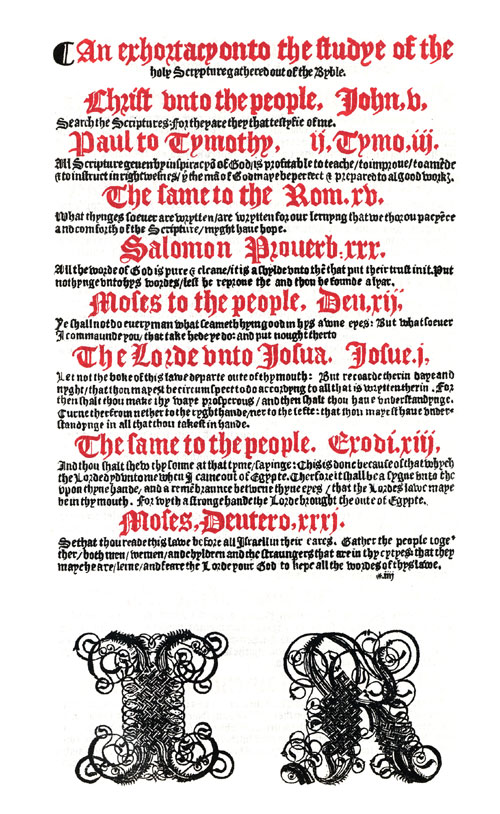 ¶ An exhortacyon to the studye of the
holy Scrypture gathered out of the Byble.
Christ vnto the people, John, v,
Search the Scriptures: for they are they that testyfie of me.
Paul to Tymothy, ij, Tymo, iij.
All Scripture geuen by inspiracyō of God, is profitable to teache / to improue / to amēde
& to instruct in rightwesnes / yͤ the mā of God maye be perfect & prepared to al good workꝭ.
The same to the Rom. xv.
What thynges soeuer are wrytten / are wrytten for our lernyng that we thorou pacyēce
and comforth of the Scripture / myght haue hope.
Salomon Prouerb. xxx.
All the worde of God is pure & cleane / it is a shylde vnto thē that put their trust in it. Put
nothynge vnto hys wordes / lest he reproue the and thou be founde a lyar.
Moses to the people, Deu, xij,
Ye shall not do euery man what seameth hym good in hys awne eyes: But what soeuer
I commaunde you, that take hede ye do: and put nought therto
The Lorde vnto Josua. Josue. j,
Let not the boke of this lawe departe oute of thy mouth: But recorde therin daye and
nyght / that thou mayest be circumspect to do accordyng to all that is wrytten therin. For
then shalt thou make thy waye prosperous / and then shalt thou haue vnderstandynge.
Turne therfrom nether to the ryght hande / ner to the lefte: that thou mayest haue vnder-
standynge in all that thou takest in hande.
The same to the people. Exodi. xiij,
And thou shalt shew thy sonne at that tyme / sayinge: This is done because of that whych
the Lorde dyd vnto me when I came out of Egypte. Therfore it shall be a sygne vnto the
vpon thyne hande, and a remēbraunce betwene thyne eyes / that the Lordes lawe maye
be in thy mouth. For wyth a stronge hande the Lorde brought the oute of Egypte.
Moses, Deutero, xxxj.
Se that thou reade this lawe before all Israell in their eares. Gather the people toge-
ther / both men / wemen / and chyldren and the straungers that are in thy cytyes that they
maye heare / lerne / and feare the Lorde your God to kepe all the wordes of thys lawe.
*.iiij
I R